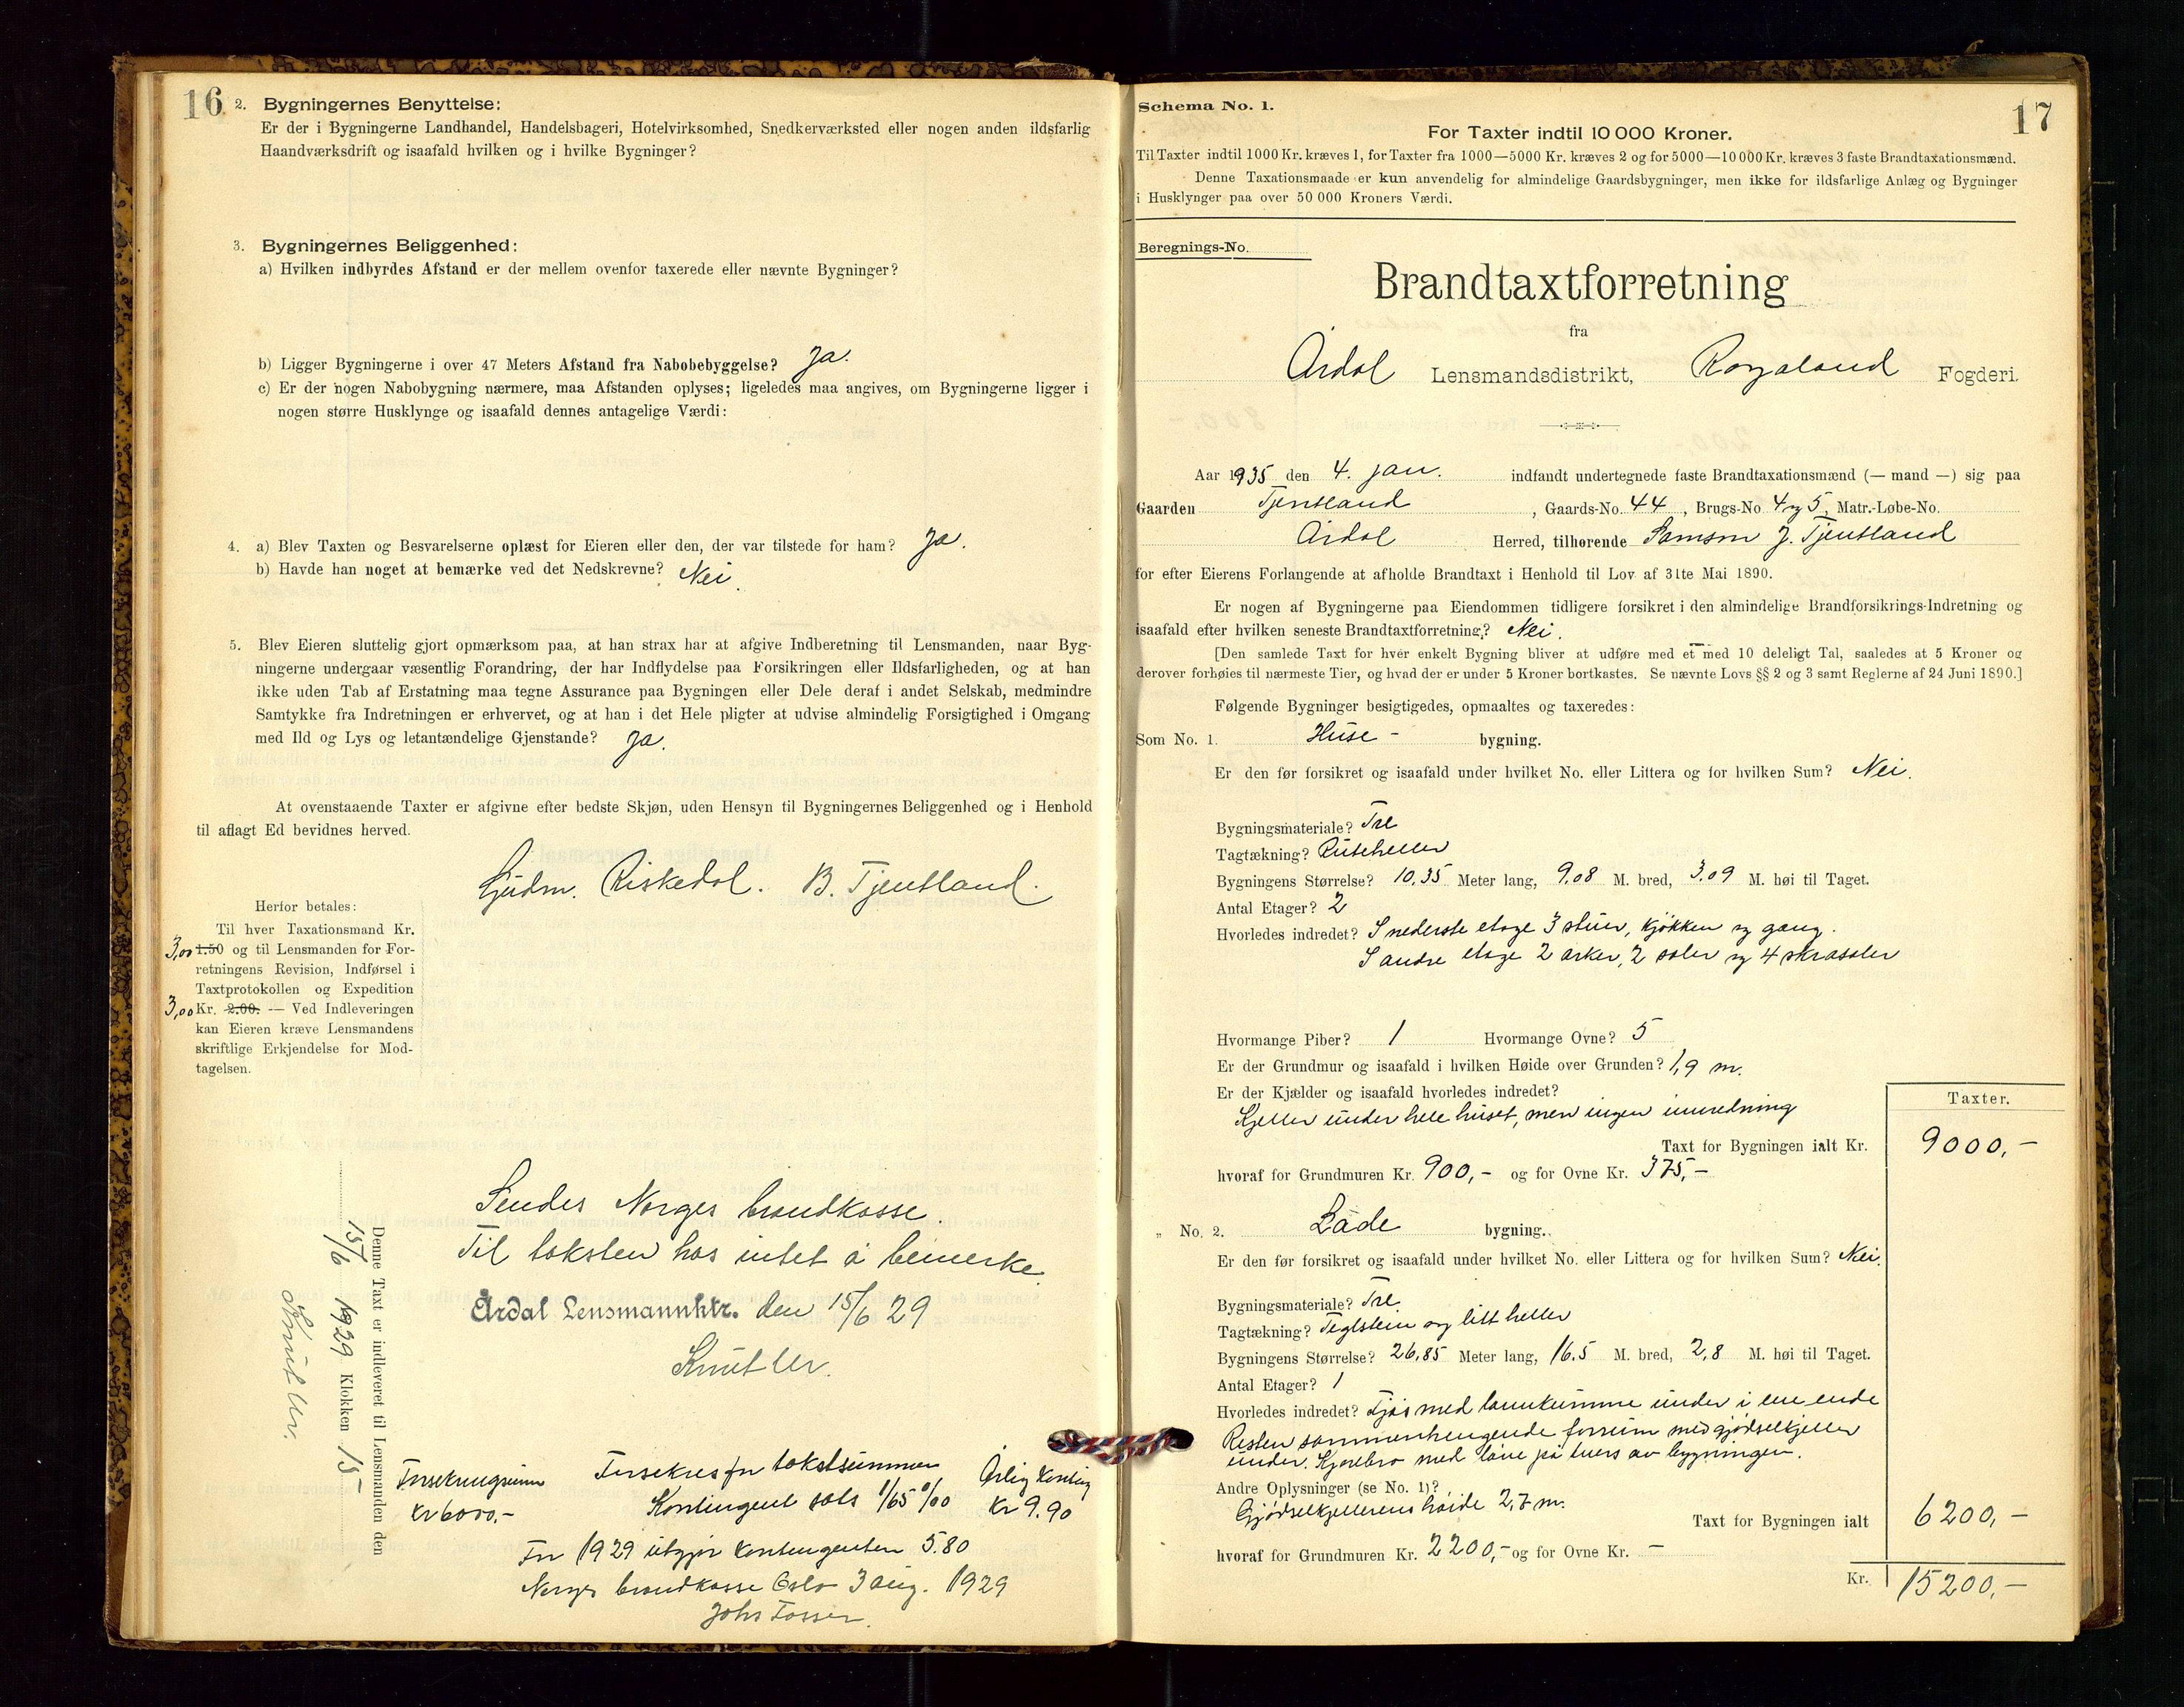 16
2. Bygningernes Benyttelse:
Er der i Bygningerne Landhandel, Handelsbageri, Hotelvirksomhed, Snedkerværksted eller nogen anden ildsfarlig
Haandværksdrift og isaafald hvilken og i hvilke Bygninger?
3. Bygningernes Beliggenhed:
a) Hvilken indbyrdes Afstand er der mellem ovenfor taxerede eller nævnte Bygninger?
b) Ligger Bygningerne i over 47 Meters Afstand fra Nabobebyggelse? Ja.
c) Er der nogen Nabobygning nærmere, maa Afstanden oplyses; ligeledes maa angives, om Bygningerne ligger i
nogen større Husklynge og isaafald dennes antagelige Værdi:
4. a) Blev Taxten og Besvarelserne oplæst for Eieren eller den, der var tilstede for ham? Ja.
b) Havde han noget at bemærke ved det Nedskrevne? Nei.
5. Blev Eieren sluttelig gjort opmærksom paa, at han strax har at afgive Indberetning til Lensmanden, naar Byg-
ningerne undergaar væsentlig Forandring, der har Indflydelse paa Forsikringen eller Ildsfarligheden, og at han
ikke uden Tab af Erstatning maa tegne Assurance paa Bygningen eller Dele deraf i andet Selskab, medmindre
Samtykke fra Indretningen er erhvervet, og at han i det Hele pligter at udvise almindelig Forsigtighed i Omgang
med Ild og Lys og letantændelige Gjenstande? Ja.
At ovenstaaende Taxter er afgivne efter bedste Skjøn, uden Hensyn til Bygningernes Beliggenhed og i Henhold
til aflagt Ed bevidnes herved.
Gudm. Riskedal. B. Tjentland.
Herfor betales:
Til hver Taxationsmand Kr.
3,00 1.50 og til Lensmanden for For-
retningens Revision, Indførsel i
Taxtprotokollen og Expedition
3,00 Kr. 2.00. — Ved Indleveringen
kan Eieren kræve Lensmandens
skriftlige Erkjendelse for Mod-
tagelsen.
Denne Taxt er indleveret til Lensmanden den
15/6 1929 Klokken 15
Knut Ur.
Sendes Norges brandkasse.
Til taksten has intet å bemerke.
Årdal Lensmannktr. den 15/6 29
Knut Ur.
Forsekringsum Forsekres for takstsummen Årlig Konting
Kr 6000,- Kontingent sats 1/65 0/00 Kr 9.90
For 1929 utgjør kontingenten 5.80
Norges brandkasse Oslo 3 aug. 1929
Johs Fosser
17
Schema No. 1.
For Taxter indtil 10 000 Kroner.
Til Taxter indtil 1000 Kr. kræves 1, for Taxter fra 1000—5000 Kr. kræves 2 og for 5000—10 000 Kr. kræves 3 faste Brandtaxationsmænd.
Denne Taxationsmaade er kun anvendelig for almindelige Gaardsbygninger, men ikke for ildsfarlige Anlæg og Bygninger
i Husklynger paa over 50 000 Kroners Værdi.
Beregnings-No.
Brandtaxtforretning
fra
Årdal Lensmandsdistrikt, Rogaland Fogderi.
Aar 1935 den 4. jan. indfandt undertegnede faste Brandtaxationsmænd (— mand —) sig paa
Gaarden Tjentland, Gaards-No. 44, Brugs-No. 4 og 5, Matr.-Løbe-No.
Årdal Herred, tilhørende Samson J. Tjentland
for efter Eierens Forlangende at afholde Brandtaxt i Henhold til Lov af 31te Mai 1890.
Er nogen af Bygningerne paa Eiendommen tidligere forsikret i den almindelige Brandforsikrings-Indretning og
isaafald efter hvilken seneste Brandtaxtforretning? Nei.
[Den samlede Taxt for hver enkelt Bygning bliver at udføre med et med 10 deleligt Tal, saaledes at 5 Kroner og
derover forhøies til nærmeste Tier, og hvad der er under 5 Kroner bortkastes. Se nævnte Lovs §§ 2 og 3 samt Reglerne af 24 Juni 1890.]
Følgende Bygninger besigtigedes, opmaaltes og taxeredes:
Som No. 1. Huse - bygning.
Er den før forsikret og isaafald under hvilket No. eller Littera og for hvilken Sum? Nei.
Bygningsmateriale? Tre
Tagtækning? Ruteheller
Bygningens Størrelse? 10,35 Meter lang, 9,08 M. bred, 3,09 M. høi til Taget.
Antal Etager? 2
Hvorledes indredet? I nederste etage 3 stuer, kjøkken og gang.
I andre etage 2 arker, 2 saler og 4 skrasaler
Hvormange Piber? 1 Hvormange Ovne? 5
Er der Grundmur og isaafald i hvilken Høide over Grunden? 1,9 m.
Er der Kjælder og isaafald hvorledes indredet?
Kjeller under hele huset, men ingen innredning
Taxter.
Taxt for Bygningen ialt Kr. 9000,-
hvoraf for Grundmuren Kr. 900,- og for Ovne Kr. 375,-
„ No. 2. Låde bygning.
Er den før forsikret og isaafald under hvilket No. eller Littera og for hvilken Sum? Nei.
Bygningsmateriale? Tre.
Tagtækning? Teglstein og litt heller
Bygningens Størrelse? 26,85 Meter lang, 16.5 M. bred, 2,8 M. høi til Taget.
Antal Etager? 1
Hvorledes indredet? Fjøs med lannkumme under i ene ende
Resten sammenhengende forrum med gjødselkjeller
under. Kjørebro med låve på tvers av bygningen.
Andre Oplysninger (se No. 1)?
Gjødselkjellerens høide 2,7 m.
Taxt for Bygningen ialt 6200,-
hvoraf for Grundmuren Kr. 2200,- og for Ovne Kr. —
Kr. 15200,-